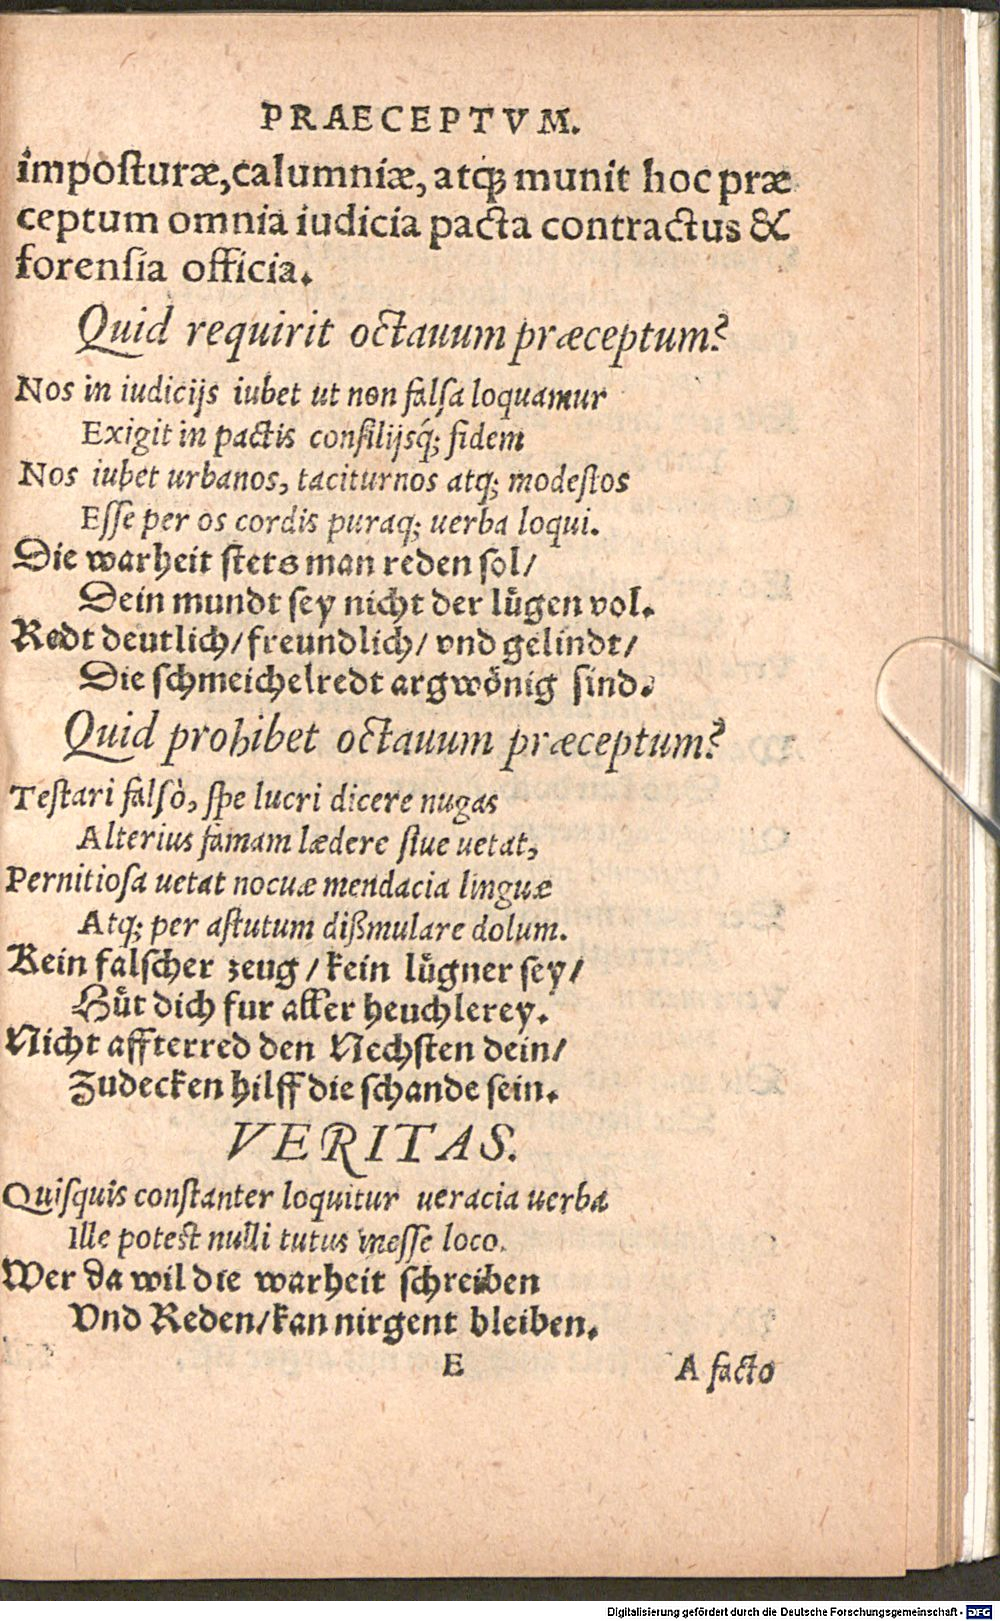 PRAECEPTVM.
imposturæ, calumniæ, atq; munit hoc præ
ceptum omnia iudicia pacta contractus &
forensia officia.
Quid requirit octauum præceptum?
Nos in iudicijs iubet ut non falsa loquamur
Exigit in pactis consilijsq́; fidem
Nos iubet urbanos, taciturnos atq; modestos
Esse per os cordis puraq; uerba loqui.
Die warheit stets man reden sol/
Dein mundt sey nicht der lügen vol.
Redt deutlich/ freundlich/ vnd gelindt/
Die schmeichelredt argwönig sind.
Quid prohibet octauum præceptum?
Testari falsò, spe lucri dicere nugas
Alterius famam lædere siue uetat,
Pernitiosa uetat nocuæ mendacia linguæ
Atq; per astutum dißmulare dolum.
Kein falscher zeug / kein lügner sey/
Hüt dich fur aller heuchlerey.
Nicht affterred den Nechsten dein/
Zudecken hilff die schande sein.
VERITAS.
Quisquis constanter loquitur ueracia uerba
Ille potest nulli tutus inesse loco.
Wer da wil die warheit schreiben
Vnd Reden/ kan nirgent bleiben.
E
A facto
Digitalisierung gefördert durch die Deutsche Forschungsgemeinschaft - DFG